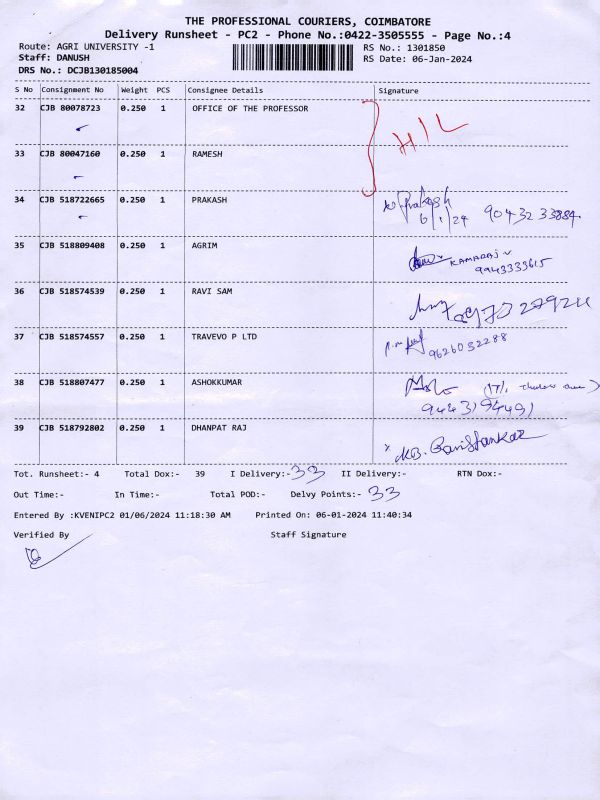 THE PROFESSIONAL COURIERS, COIMBATORE
Delivery Runsheet - PC2 - Phone No.:0422-3505555 - Page No.:4
Route: AGRI UNIVERSITY -1
RS No.: 1301850
Staff: DANUSH
RS Date: 06-Jan-2024
DRS No.: DCJB130185004
S No Consignment No Weight PCS Consignee Details Signature
32 CJB 80078723 0.250 1 OFFICE OF THE PROFESSOR
33 CJB 80047160 0.250 1 RAMESH
34 CJB 518722665 0.250 1 PRAKASH Prakash
6/1/24 9043233884
35 CJB 518809408 0.250 1 AGRIM
KAMARAJ V
9943333615
36 CJB 518574539 0.250 1 RAVI SAM
37 CJB 518574557 0.250 1 TRAVEVO P LTD
9626032288
38 CJB 518807477 0.250 1 ASHOKKUMAR
39 CJB 518792802 0.250 1 DHANPAT RAJ
Tot. Runsheet:- 4 Total Dox:- 39 I Delivery:- 33 II Delivery:- RTN Dox:-
Out Time:- In Time:- Total POD:- Delvy Points:- 33
Entered By :KVENIPC2 01/06/2024 11:18:30 AM Printed On: 06-01-2024 11:40:34
Verified By Staff Signature